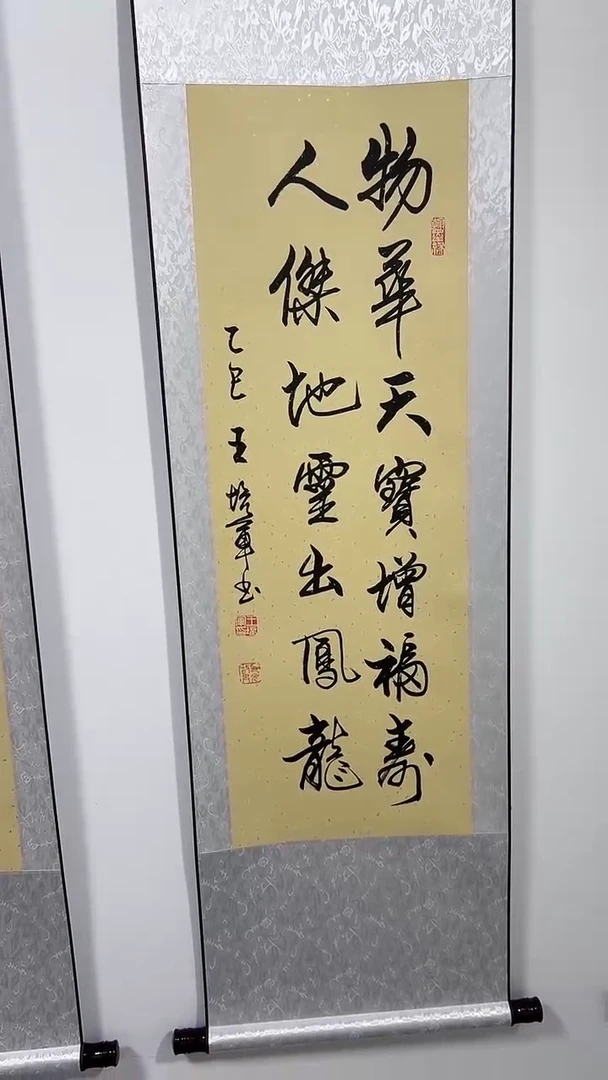 物華天寶增福寿
人傑地靈出鳳龍
乙巳 王培軍书